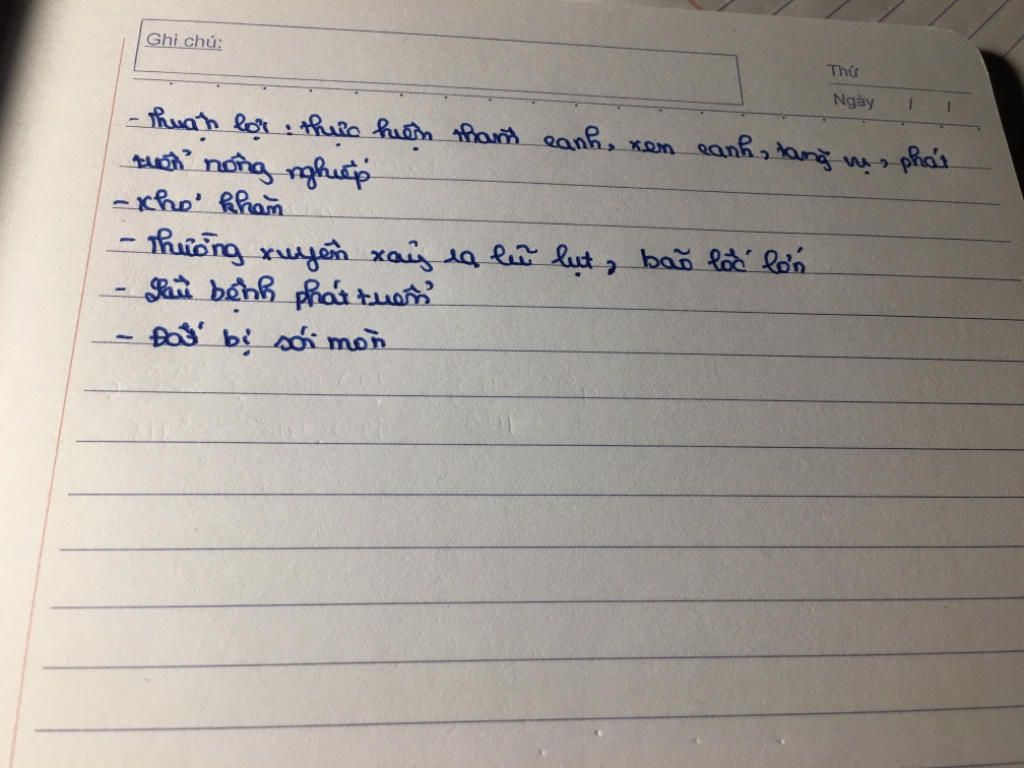 Ghi chú:
Thứ
Ngày / /
- Thuận lợi : thực hiện thâm canh, xen canh, tăng vụ, phát
triển nông nghiệp
- Khó khăn
- Thường xuyên xảy ra lũ lụt, bão lốc lớn
- Sâu bệnh phát triển
- Đất bị sói mòn